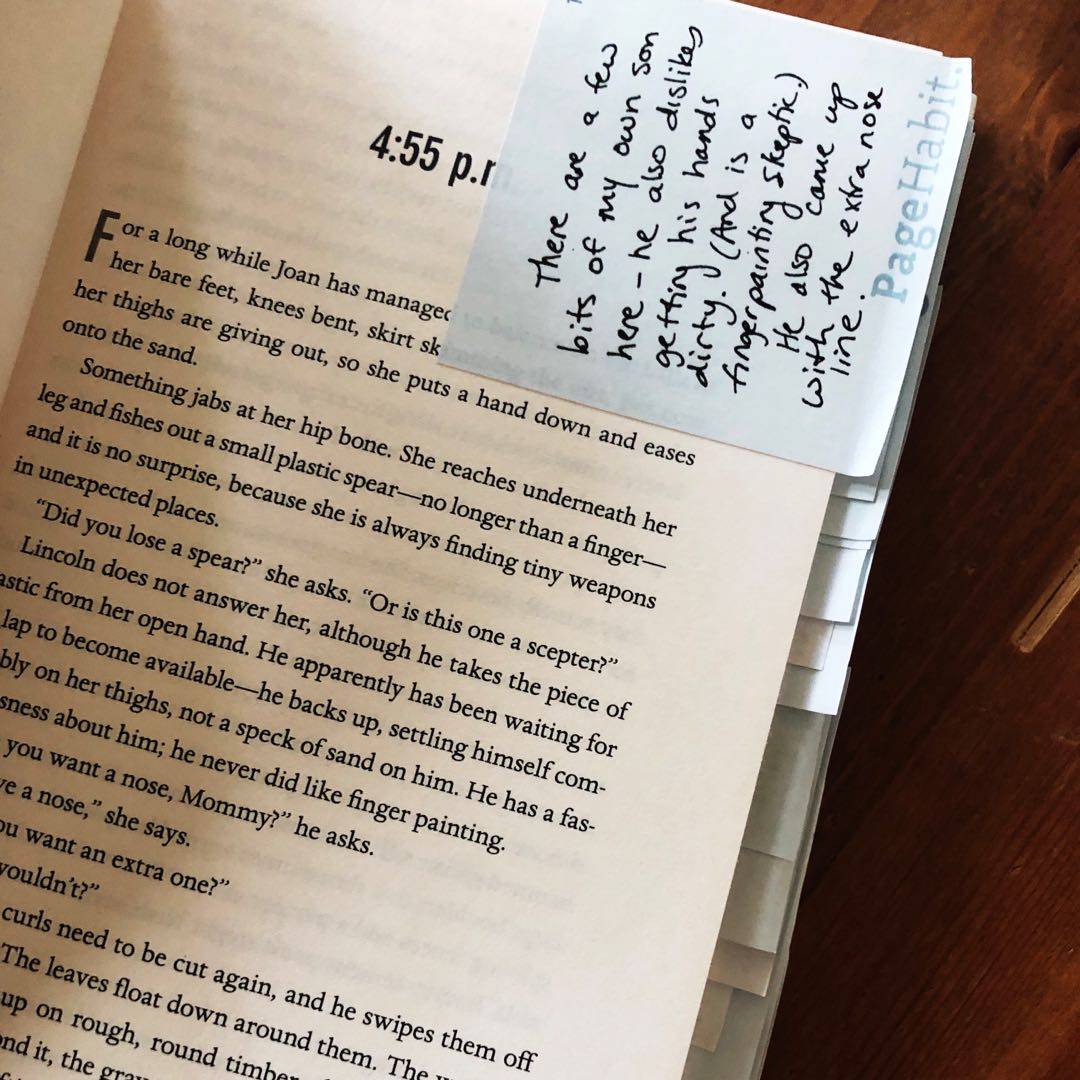 4:55 p.
For a long while Joan has managed
her bare feet, knees bent, skirt
her thighs are giving out, so she puts a hand down and eases
onto the sand.
Something jabs at her hip bone. She reaches underneath her
leg and fishes out a small plastic spear—no longer than a finger—
and it is no surprise, because she is always finding tiny weapons
in unexpected places.
“Did you lose a spear?” she asks. “Or is this one a scepter?”
Lincoln does not answer her, although he takes the piece of
astic from her open hand. He apparently has been waiting for
lap to become available—he backs up, settling himself com-
bly on her thighs, not a speck of sand on him. He has a fas-
sness about him; he never did like finger painting.
you want a nose, Mommy?” he asks.
ve a nose,” she says.
ou want an extra one?”
wouldn’t?”
curls need to be cut again, and he swipes them off
The leaves float down around them. The
up on rough, round timber
ond it, the
There are a few
bits of my own son
here - he also dislikes
getting his hands
dirty. (And is a
fingerpainting skeptic.)
He also came up
with the extra nose
line.
PageHabit.